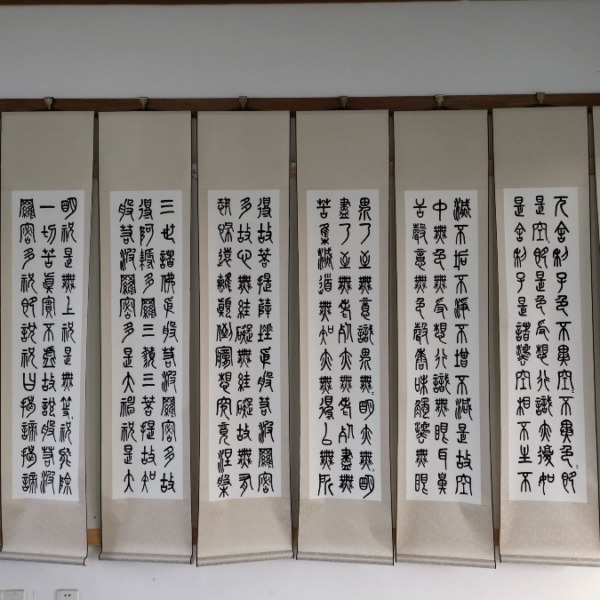 厄舍利子色不異空不異色即
是空即是色受想行識亦復如
是舍利子是諸法空相不生不
滅不垢不淨不增不減是故空
中無色無受想行識無眼耳鼻
舌身意無色聲香味觸法無眼
界乃至無意識界無明亦無明
盡乃至無老死亦無老死盡無
苦集滅道無知亦無得以無所
得故菩提薩埵依般若波羅密
多故心無罣礙無罣礙故無有
恐怖遠離顛倒夢想究竟涅槃
三世諸佛依般若波羅密多故
得阿耨多羅三藐三菩提故知
般若波羅密多是大神咒是大
明咒是無上咒是無等咒能除
一切苦真實不虛故說般若波
羅密多咒即說咒曰揭諦揭諦